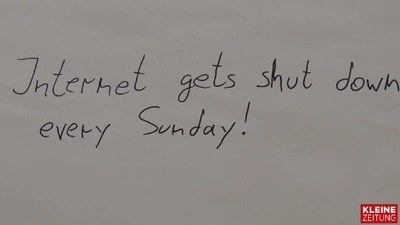 Internet gets shut down
every Sunday!
KLEINE
ZEITUNG